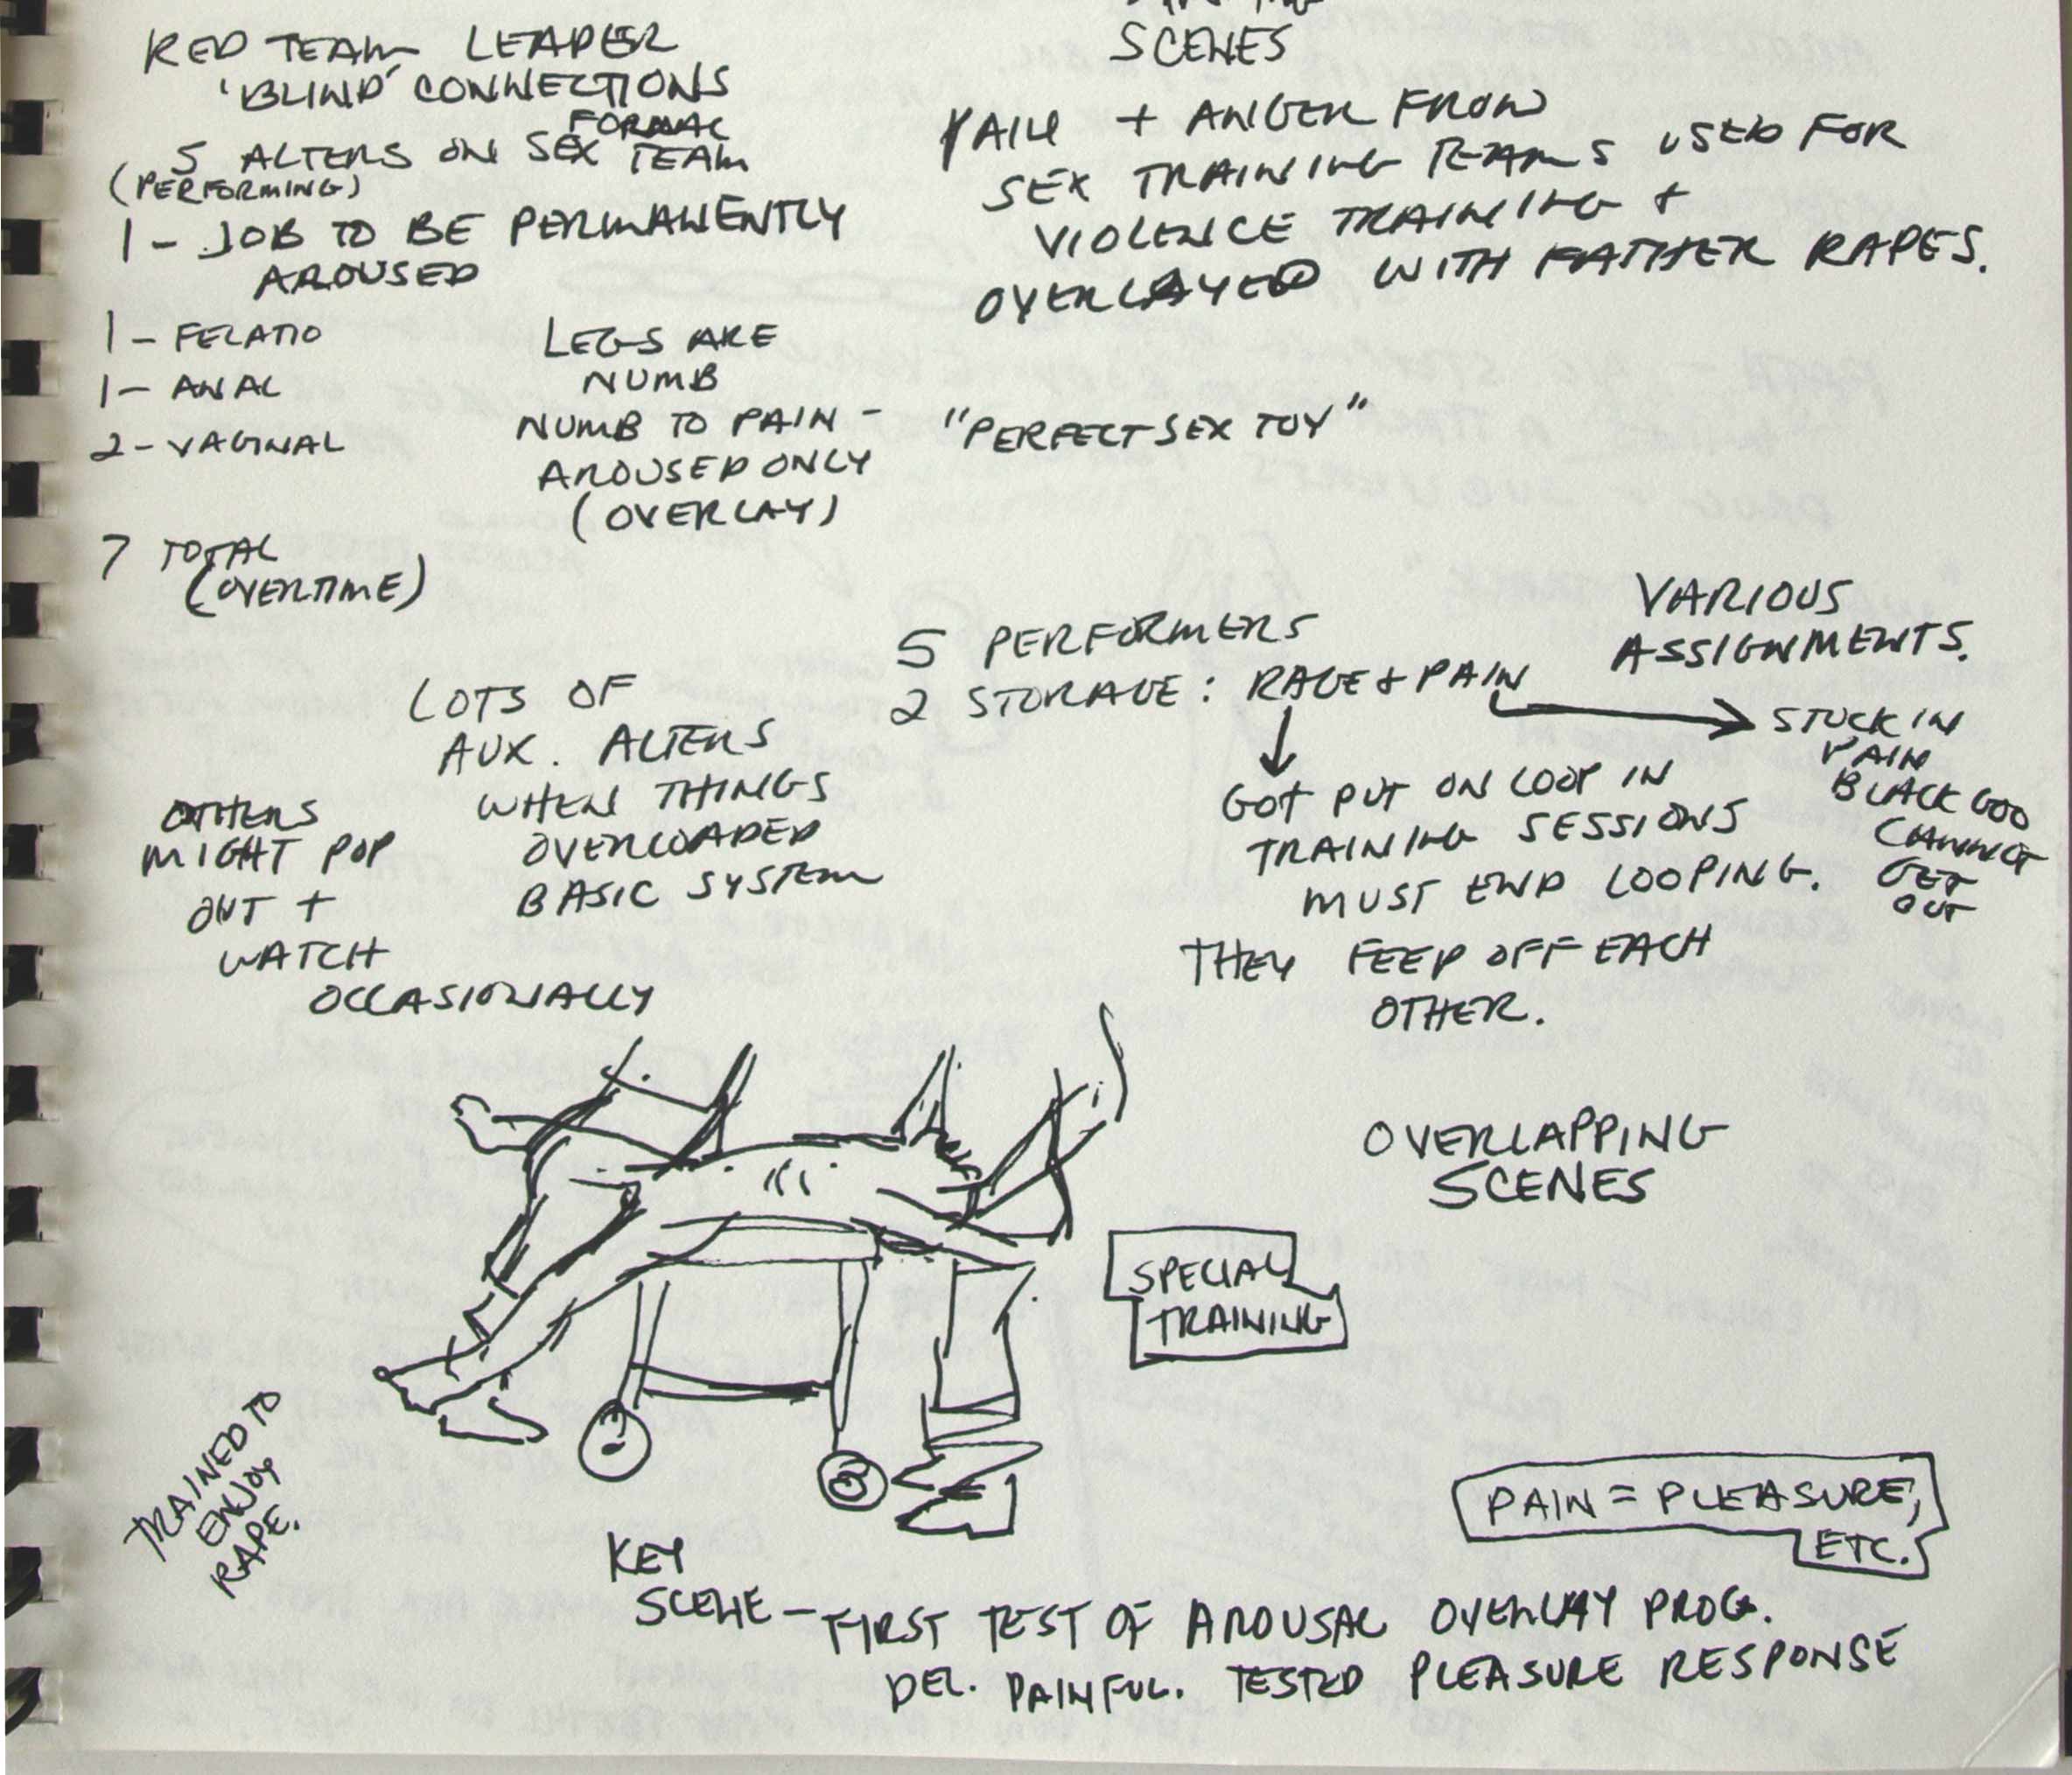 RED TEAM LEADER
'BLIND' CONNECTIONS
FORMAL
5 ALTERS ON SEX TEAM
(PERFORMING)
1 - JOB TO BE PERMANENTLY
AROUSED
1 - FELATIO
1 - ANAL
2 - VAGINAL
7 TOTAL
(OVERTIME)
LEGS ARE
NUMB
NUMB TO PAIN -
AROUSED ONLY
(OVERLAY)
SCENES
PAIN + ANGER FROM
SEX TRAINING TEAMS USED FOR
VIOLENCE TRAINING +
OVERLAYED WITH FATHER RAPES.
"PERFECT SEX TOY"
VARIOUS
ASSIGNMENTS.
5 PERFORMERS
2 STORAGE: RAGE & PAIN
STUCK IN
PAIN
BLACK GOO
CANNOT
GET
OUT
GOT PUT ON LOOP IN
TRAINING SESSIONS
MUST END LOOPING.
THEY FEED OFF EACH
OTHER.
LOTS OF
AUX. ALTERS
WHEN THINGS
OVERLOADED
BASIC SYSTEM
OTHERS
MIGHT POP
OUT +
WATCH
OCCASIONALLY
OVERLAPPING
SCENES
SPECIAL
TRAINING
TRAINED TO
ENJOY
RAPE.
PAIN = PLEASURE,
ETC.
KEY
SCENE - FIRST TEST OF AROUSAL OVERLAY PROG.
DEL. PAINFUL. TESTED PLEASURE RESPONSE